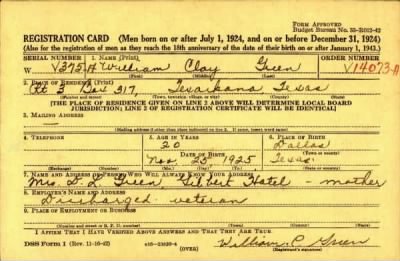 FORM APPROVED
Budget Bureau No. 33-R012-42
REGISTRATION CARD (Men born on or after July 1, 1924, and on or before December 31, 1924)
(Also for the registration of men as they reach the 18th anniversary of the date of their birth on or after January 1, 1943.)
SERIAL NUMBER 1. NAME (Print) ORDER NUMBER
William Clay Green V14073-A
(First) (Middle) (Last)
2. PLACE OF RESIDENCE (Print)
Rt 3 Box 317, Texarkana, Texas
(Number and street) (Town, township, village, or city) (County) (State)
[THE PLACE OF RESIDENCE GIVEN ON LINE 2 ABOVE WILL DETERMINE LOCAL BOARD
JURISDICTION; LINE 2 OF REGISTRATION CERTIFICATE WILL BE IDENTICAL]
3. MAILING ADDRESS
—
[Mailing address if other than place indicated on line 2. If same, insert word same]
4. TELEPHONE 5. AGE IN YEARS 6. PLACE OF BIRTH
20 Dallas
DATE OF BIRTH (Town or county)
Nov. 25 1925 Texas
(Exchange) (Number) (Mo.) (Day) (Yr.) (State or country)
7. NAME AND ADDRESS OF PERSON WHO WILL ALWAYS KNOW YOUR ADDRESS
Green Hotel - mother
8. EMPLOYER'S NAME AND ADDRESS
Discharged veteran
9. PLACE OF EMPLOYMENT OR BUSINESS
(Number and street or R. F. D. number) (Town) (County) (State)
I AFFIRM THAT I HAVE VERIFIED ABOVE ANSWERS AND THAT THEY ARE TRUE.
DSS Form 1 (Rev. 11-16-42) (OVER) William C Green
(Registrant's signature)